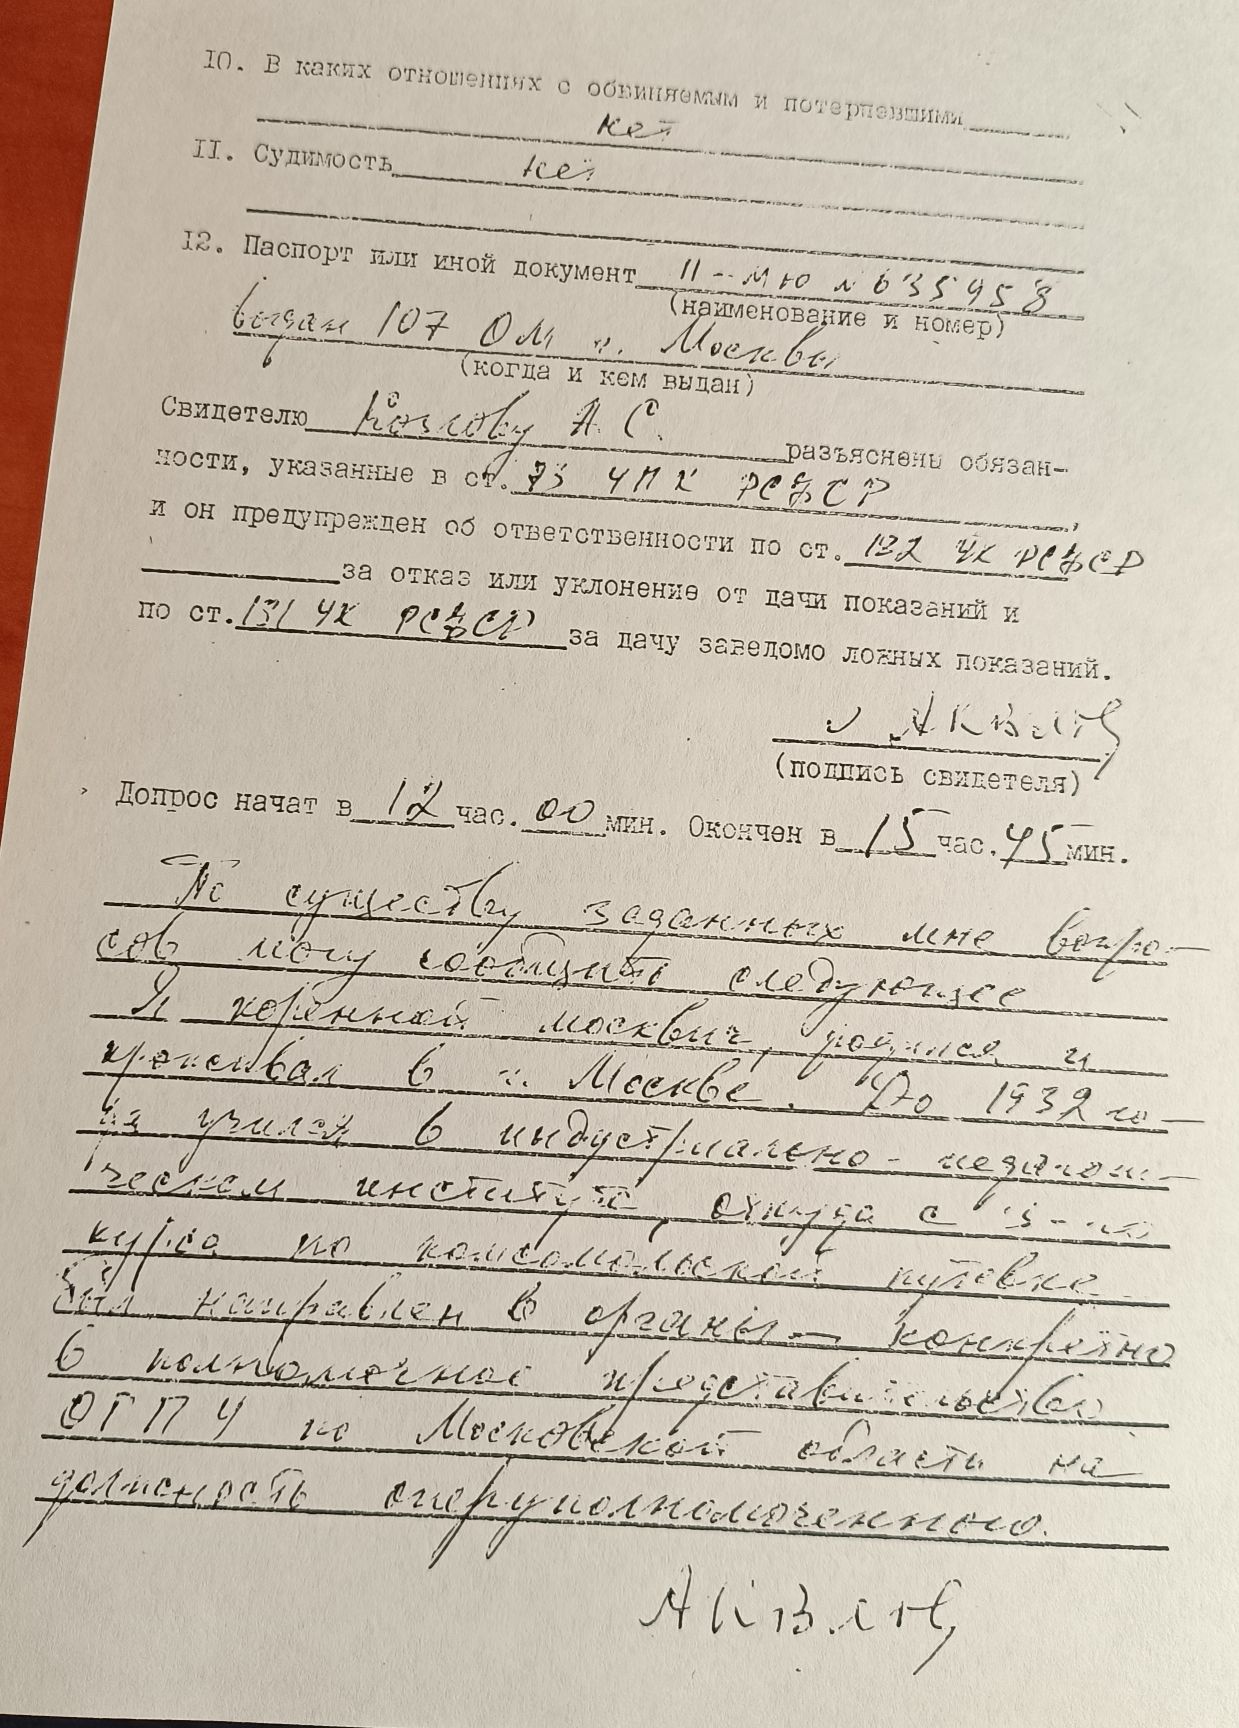 10. В каких отношениях с обвиняемым и потерпевшими
нет
II. Судимость нет
12. Паспорт или иной документ II-МЮ № 635958
(наименование и номер)
выдан 107 ОМ г. Москвы
(когда и кем выдан)
Свидетелю Козлову А С. разъяснены обязан-
ности, указанные в ст. 73 УПК РСФСР,
и он предупрежден об ответственности по ст. 182 УК РСФСР
за отказ или уклонение от дачи показаний и
по ст. 181 УК РСФСР за дачу заведомо ложных показаний.
(подпись свидетеля)
Допрос начат в 12 час. 00 мин. Окончен в 15 час. 45 мин.
По существу заданных мне вопро-
сов могу сообщить следующее
Я коренной москвич, родился и
проживал в г. Москве. До 1932 го-
да учился в индустриально-педагоги-
ческом институте, откуда с 3-го
курса по комсомольской путевке
был направлен в органы — конкретно
в полномочное представительство
ОГПУ по Московской области на
должность оперуполномоченного.